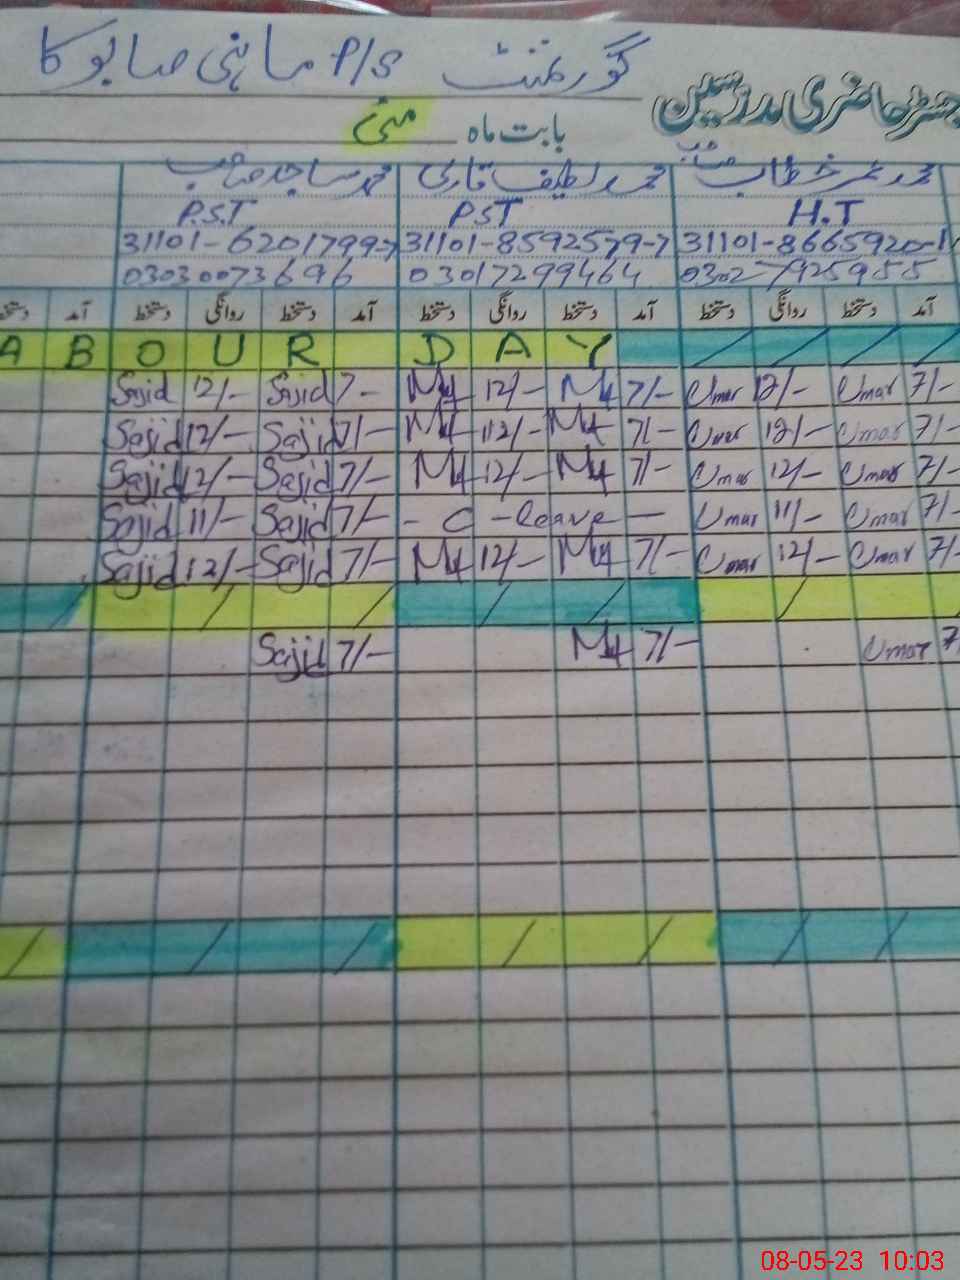 گورنمنٹ P/S ماہنی صابوکا
رجسٹر حاضری مدرسین
بابت ماہ مئی
محمد عمر خطاب صاحب محمد لطیف قاری محمد ساجد صاحب
H.T PST P.S.T
31101-6201799-7 31101-8592579-7 31101-8665920-1
03030073696 03017299464 0302-7925955
آمد دستخط روانگی دستخط آمد دستخط روانگی دستخط آمد دستخط روانگی دستخط آمد دستخط
A B O U R D A Y
Sajid 12/- Sajid 7- M4 12/- M4 7/- Umar 12/- Umar 7/-
Sajid 12/- Sajid 7/- M4 12/- M4 7/- Umar 12/- Umar 7/-
Sajid 12/- Sajid 7/- M4 12/- M4 7/- Umar 12/- Umar 7/-
Sajid 11/- Sajid 7/- - C - leave - Umar 11/- Umar 7/-
Sajid 12/- Sajid 7/- M4 12/- M4 7/- Umar 12/- Umar 7/-
Sajid 7/- M4 7/- Umar 7
08-05-23 10:03